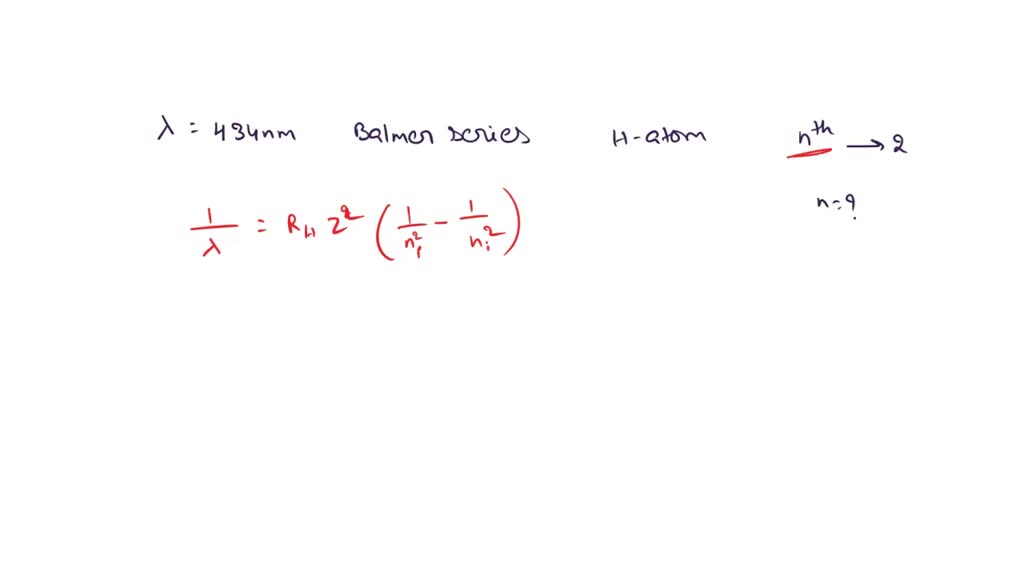 λ = 434nm Balmer series H-atom nth → 2
n = ?
1/λ = RH Z² (1/nf² - 1/ni²)